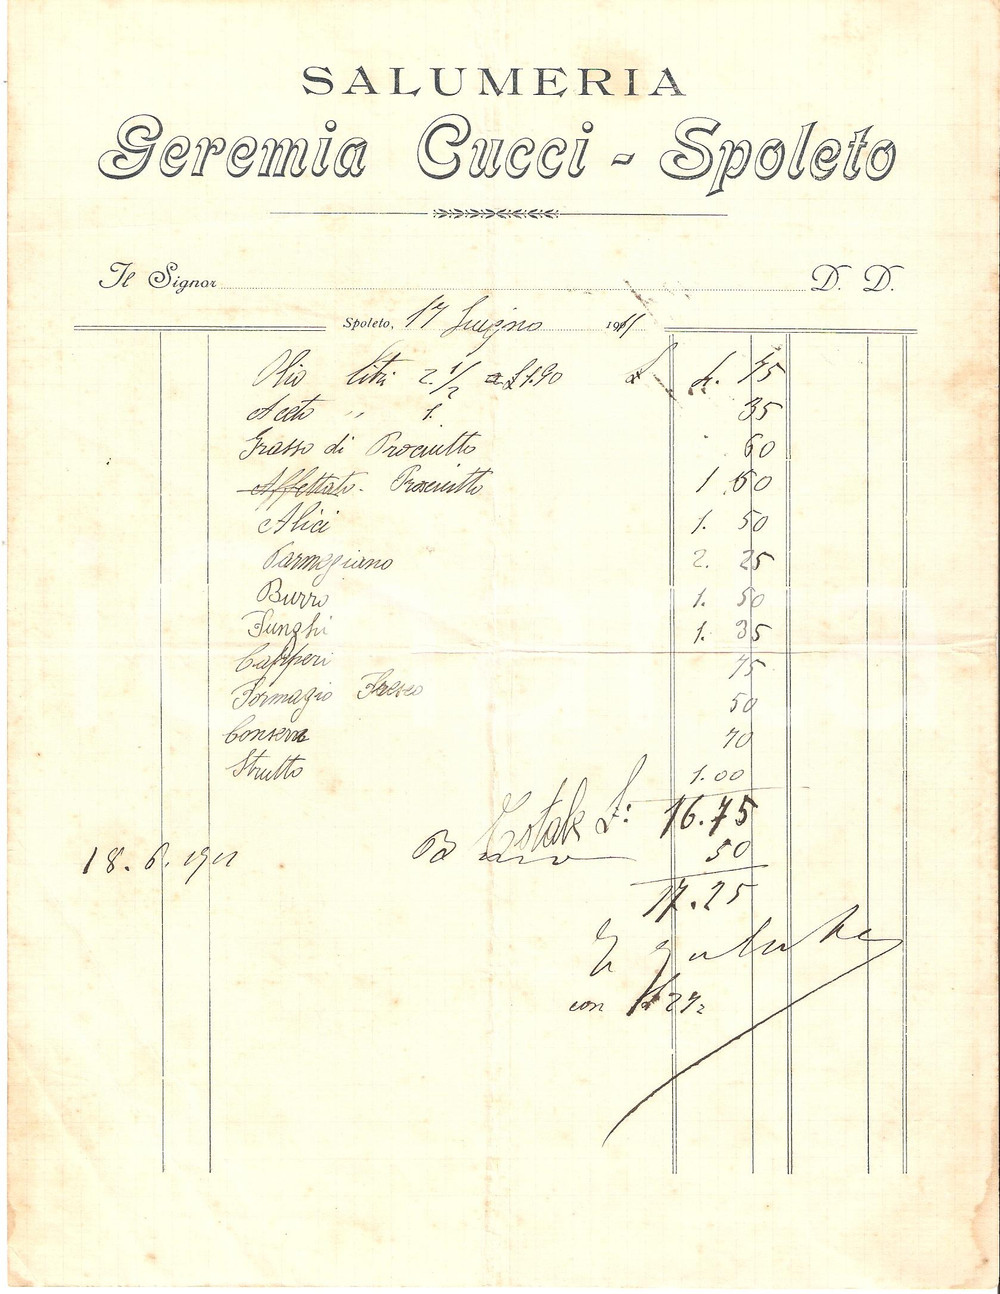 SALUMERIA
Geremia Cucci - Spoleto
Il Signor D. D.
Spoleto, 17 Giugno 1911
Olio litri 2. 1/2 a £ 1.90 £ 4. 75
Aceto " 1. 35
Grasso di Prociutto 60
Affettato. Prosciutto 1 60
Alici 1. 50
Parmegiano 2. 25
Burro 1. 50
Funghi 1. 35
Capperi 75
Formagio Fresco 50
Conserva 70
Strutto 1.00
Totale £: 16.75
18.6.1911 Burro 50
17.25
con